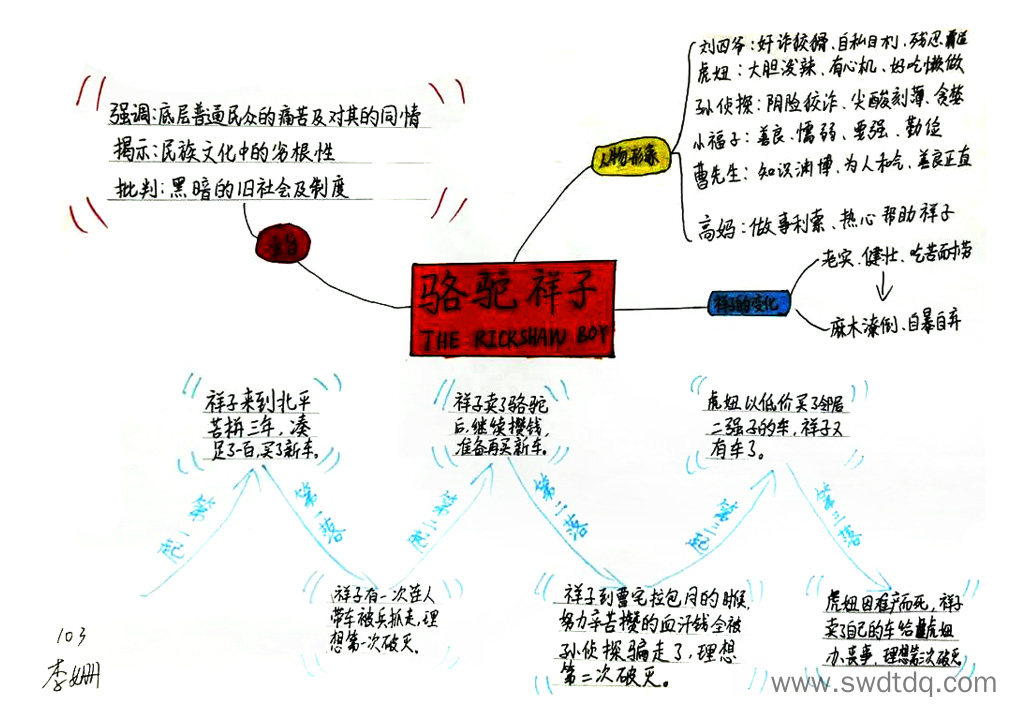 强调:底层普通民众的痛苦及对其的同情
揭示:民族文化中的劣根性
批判:黑暗的旧社会及制度
主旨
骆驼祥子
THE RICKSHAW BOY
人物形象
刘四爷:奸诈狡猾、自私自利、残忍霸道
虎妞:大胆泼辣、有心机、好吃懒做
孙侦探:阴险狡诈、尖酸刻薄、贪婪
小福子:善良、懦弱、要强、勤俭
曹先生:知识渊博、为人和气、善良正直
高妈:做事利索、热心帮助祥子
祥子的变化
老实、健壮、吃苦耐劳
麻木潦倒、自暴自弃
祥子来到北平
苦拼三年,凑
足了一百,买了新车。
祥子卖了骆驼
后,继续攒钱,
准备再买新车。
虎妞以低价买了邻居
二强子的车,祥子又
有车了。
第一起
第一落
第二起
第二落
第三起
第三落
祥子有一次连人
带车被兵抓走,理
想第一次破灭。
祥子到曹宅拉包月的时候,
努力辛苦攒的血汗钱全被
孙侦探骗走了,理想
第二次破灭。
虎妞因难产而死,祥子
卖了自己的车给虎妞
办丧事,理想第三次破灭
103
李姗
www.swdtdq.com